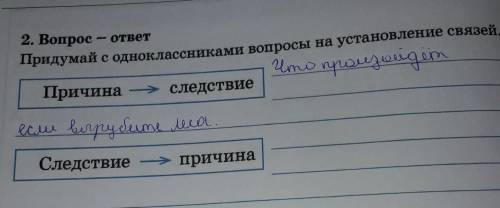 2. Вопрос – ответ
Придумай с одноклассниками вопросы на установление связей,
Причина → следствие
Что произойдёт
если вырубить леса.
Следствие → причина